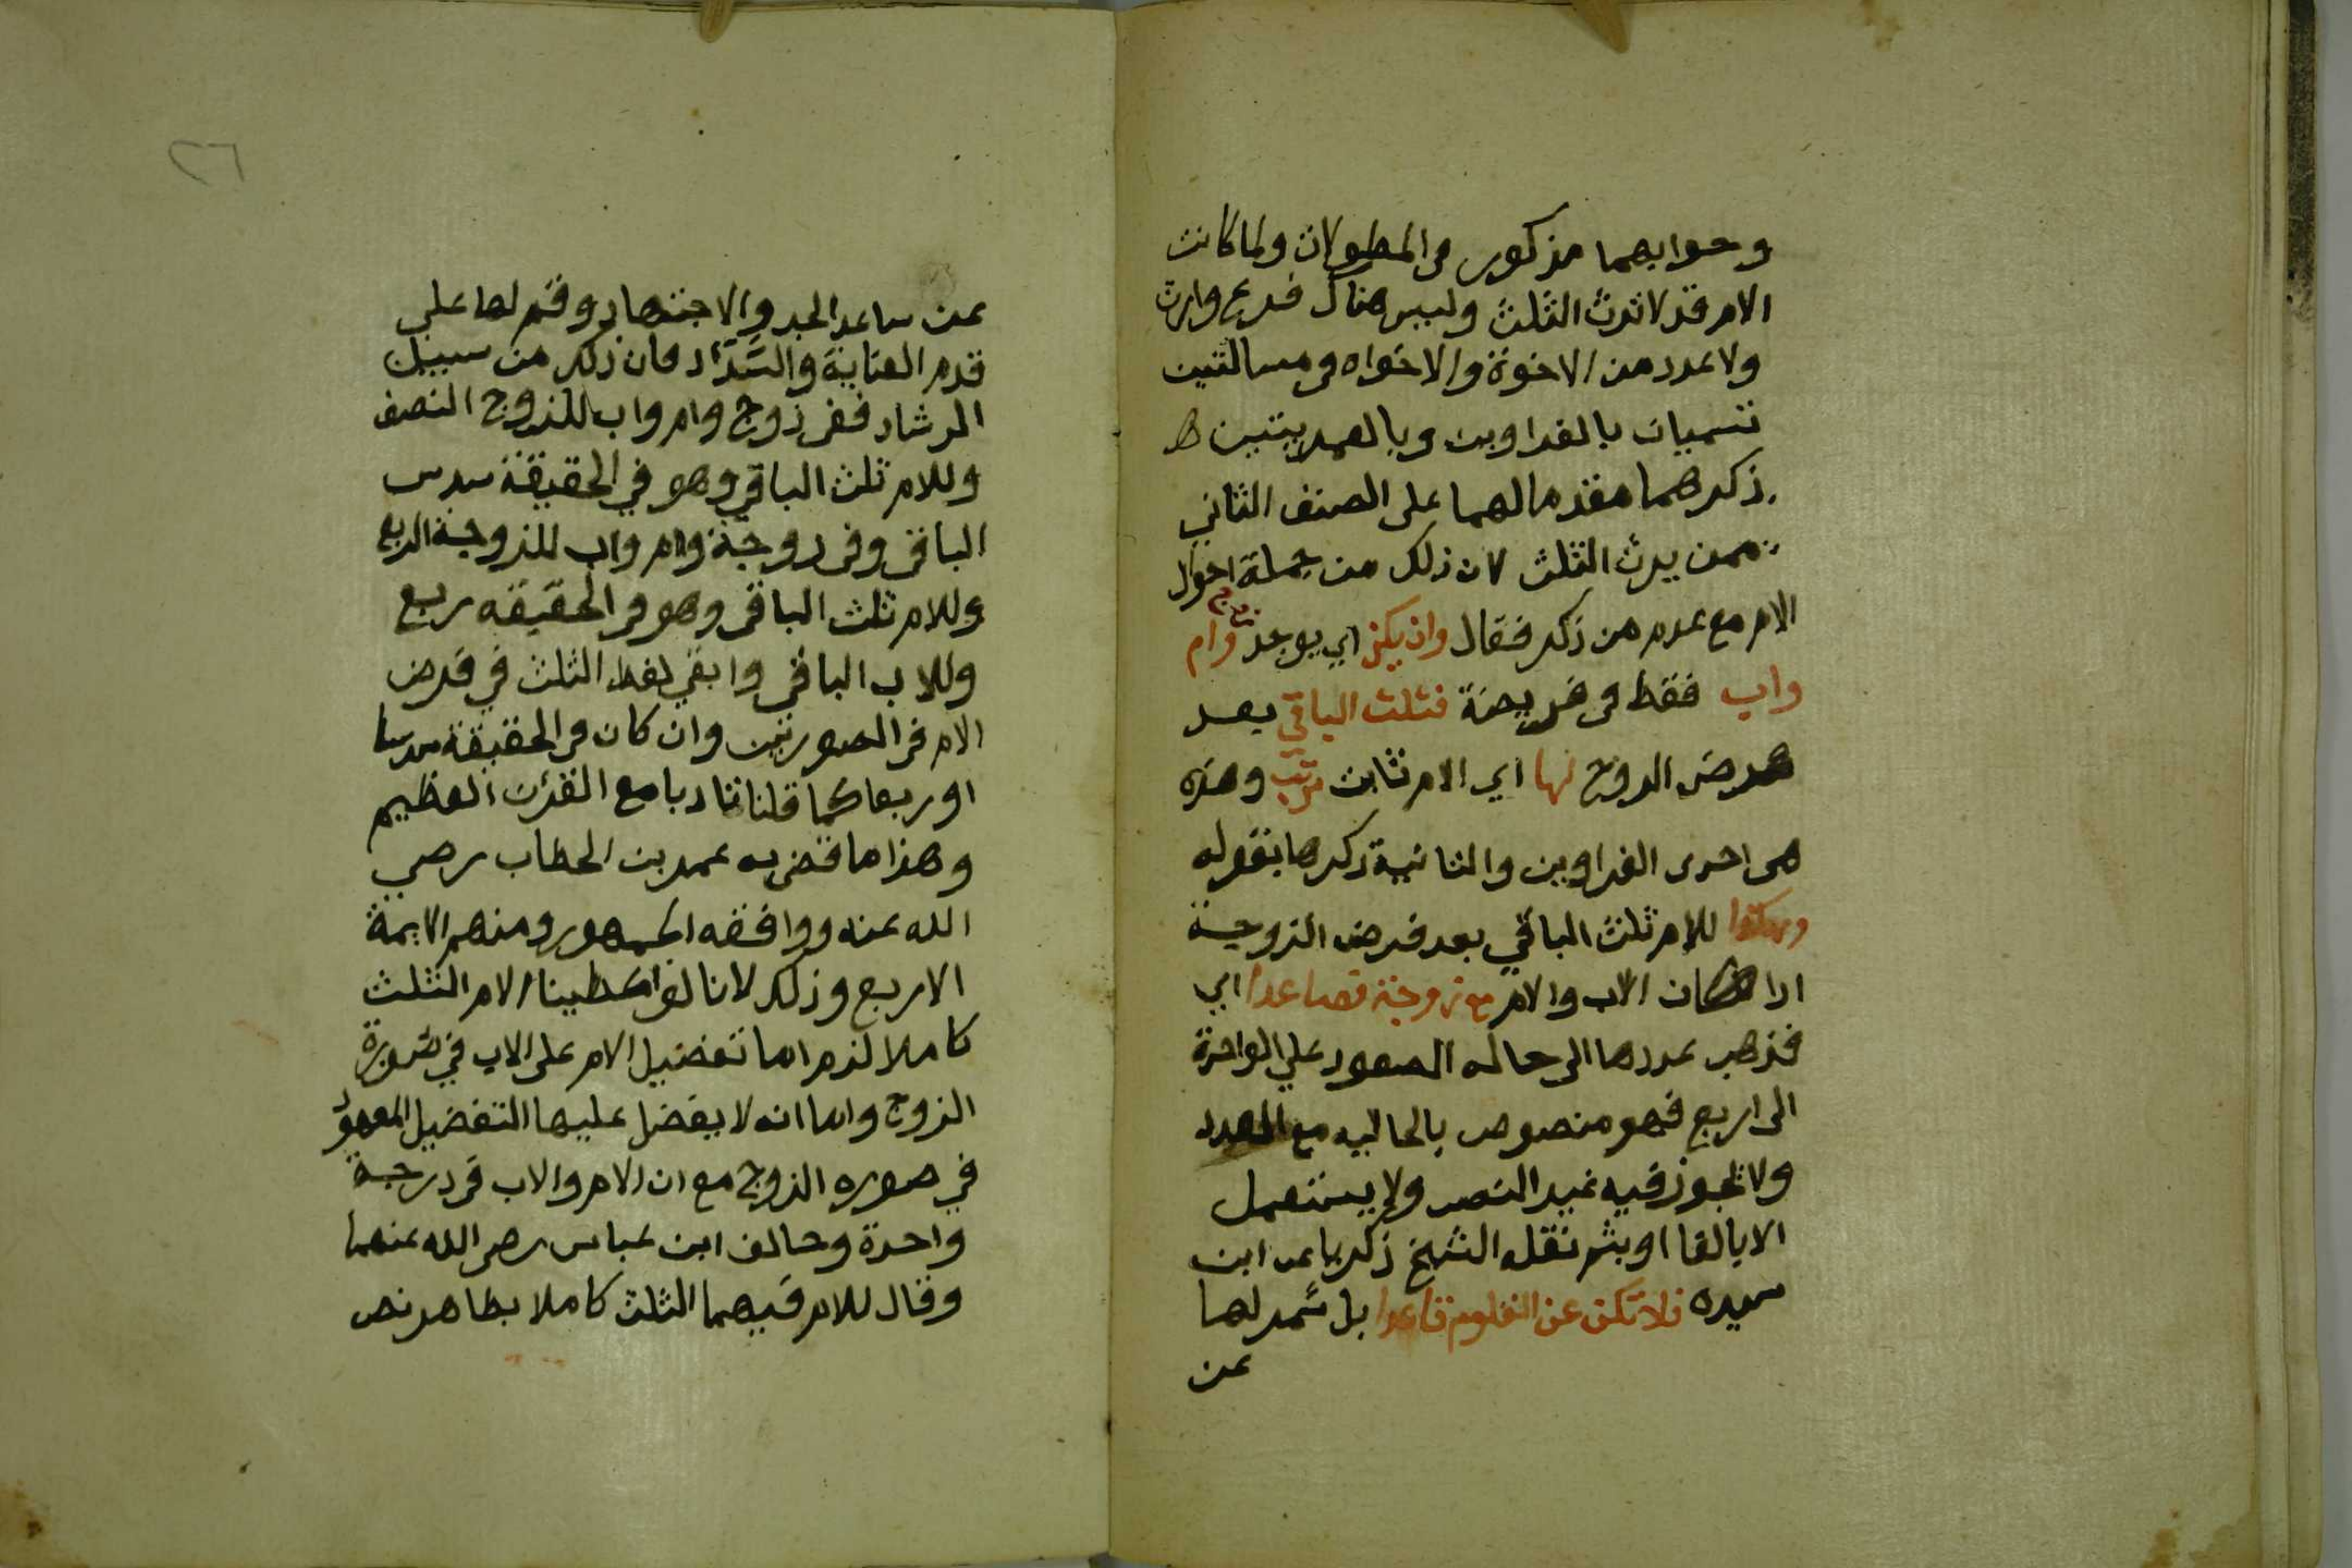 وجوابهما مذكور في المطولات ولما كانت
الام قد لا ترث الثلث وليس هناك فرع وارث
ولا عدد من الاخوة والاخواه في مسالتين
تسميان بالغراوين وبالعمريتين
ذكرهما مقدما لهما على الصنف الثاني
ممن يرث الثلث لان ذلك من جملة احوال
الام مع عدم من ذكر فقال وان يكن اي يوجد زوج وام
واب فقط في فريضة فثلث الباقي بعد
فرض الزوج لها اي الام ثابت مرتب وهذه
هي احدى الغراوين والثانية ذكرها بقوله
وهكذا للام ثلث الباقي بعد فرض الزوجية
اذا كان الاب والام مع زوجة فصاعدا اي
فذهب عددها الى حاله الصعود على الواحدة
الى اربع فهو منصوب بالحاليه مع العدد
ولا يجوز فيه غير النصب ولا يستعمل
الا بالفا او بثم نقله الشيخ زكريا عن ابن
سيده فلا تكن عن العلوم قاعدا بل شمر لها
عن
٢٦
عن ساعد الجد والاجتهاد وقم لها على
قدم العناية والسَّدَاد فان ذلك من سبيل
الرشاد ففي زوج وام واب للزوج النصف
وللام ثلث الباقي وهو في الحقيقة سدس
الباقي وفي زوجة وام واب للزوجة الربع
وللام ثلث الباقي وهو في الحقيقه ربع
وللاب الباقي وابقي لفظ الثلث في فرض
الام في الصورتين وان كان في الحقيقة سدسا
او ربعا كما قلنا تادبا مع القرن العظيم
وهذا ما قضى به عمر بن الخطاب رضي
الله عنه ووافقه الجمهور ومنهم الايمة
الاربع وذلك لانا لو اعطينا الام الثلث
كاملا لزم اما تفضيل الام على الاب في صورة
الزوج واما انه لا يفضل عليها التفضيل المعهود
في صوره الزوج مع ان الام والاب في درجة
واحدة وخالف ابن عباس رضي الله عنهما
وقال للام فيهما الثلث كاملا بظاهر نص